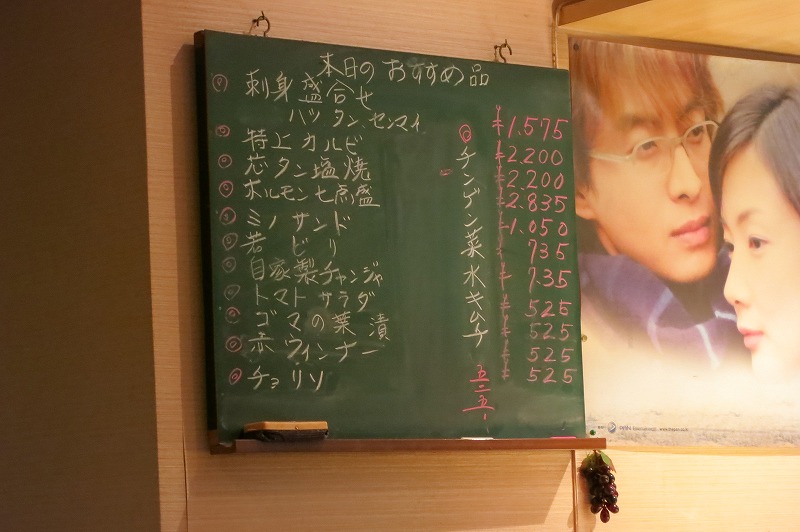 本日のおすすめ品
◎ 刺身盛合せ
ハツ タン センマイ ¥1.575
◎ 特上カルビ ¥2.200
◎ 芯タン塩焼 ¥2.200
◎ ホルモン七点盛 ¥2.835
◎ ミノサンド ¥1.050
◎ 若ビリ 735
◎ 自家製チャンジャ ¥735
◎ トマトサラダ ¥525
◎ ゴマの葉漬 ¥525
◎ 赤ウィンナー ¥525
◎ チョリソ ¥525
◎ チンゲン菜水キムチ 五二五、